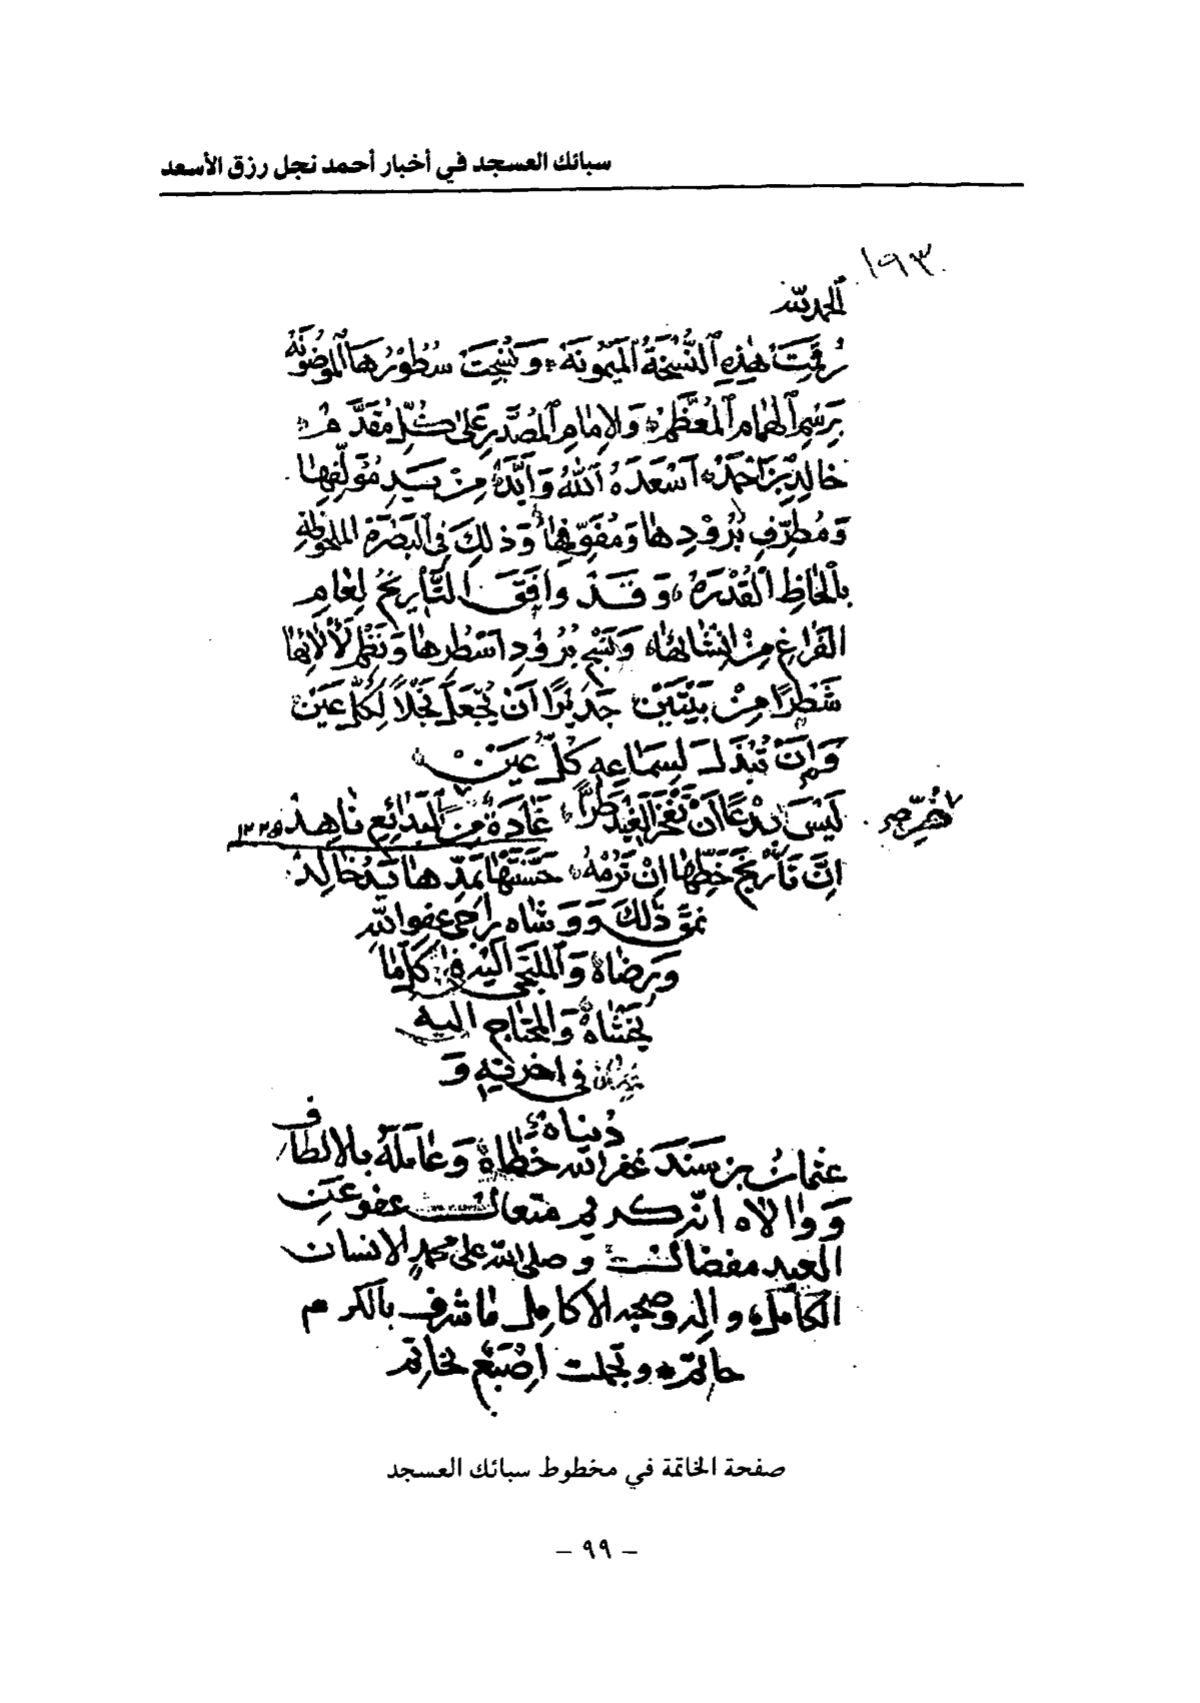 سبائك العسجد في أخبار أحمد نجل رزق الأسعد
١٩٣
الحمد لله
رُقِمَتْ هٰذِهِ النُّسْخَةُ الْمَيْمُونَة وَنُسِجَتْ سُطُوْرُهَا الْمَوْضُوْنَة
بِرَسْمِ الْهُمَامِ الْمُعَظَّم وَالإِمَامِ الْمُصَدَّرِ عَلَى كُلِّ مُقَدَّم
خَالِدِ بْنِ اَحْمَد اَسْعَدَهُ اللهُ وَأَيَّدَهُ مِنْ يَدِ مُؤَلِّفِهَا
وَمُطَرِّفِ بُرُوْدِهَا وَمُفَوِّفِهَا وَذٰلِكَ فِي الْبَصْرَةِ الْمَلْحُوْظَةِ
بِأَلْحَاظِ الْقُدْرَة وَقَدْ وَافَقَ التَّأْرِيخُ لِعَامِ
الفَرَاغِ مِنْ اِنْشَائِهَا وَنَسْجِ بُرُوْدِ اَسْطُرِهَا وَنَظْمِ لَأْلَائِهَا
شَطْرًا مِنْ بَيْتَيْنِ جَدِيْرًا اَنْ يُجْعَلَ نَجْلاً لِكُلِّ عَيْن
وَاِنْ تُبْذَلَ لِسَمَاعِهِ كُلُّ عَيْن
لَيْسَ بِدْعًا اَنْ تَفْخَرَ الْغِيْدَ طُرًّا غَادَةٌ مِنَ الْبَدَائِعِ نَاهِدْ ١٢٢٥
اِنَّ تَأْرِيْخَ خَطِّهَا اِنْ تَرُمْهُ حَسَّنَتْهَا بِمَدِّهَا يَدُ خَالِدْ
نمق ذٰلِكَ وَوَشَاه رَاجِي عفو الله
وَرِضَاهُ وَالْمُلْتَجِئ اِلَيْهِ مِنْ كُلِّ مَا
يَخْشَاهُ وَالْمُحْتَاج اِلَيه
في اخرته وَ
دُنياه
عثمان بن سند غفر الله خطاه وَعَامَلَهُ بالالطاف
وَوَالاه انه كريم متعال عفو عن
العبد مفضال وصلى الله على محمد الانسان
الكامل واله وصحبه الاكامل ما شرف بالكرم
حاتم وتجملت اصْبَع بخاتم
صفحة الخاتمة في مخطوط سبائك العسجد
– ٩٩ –